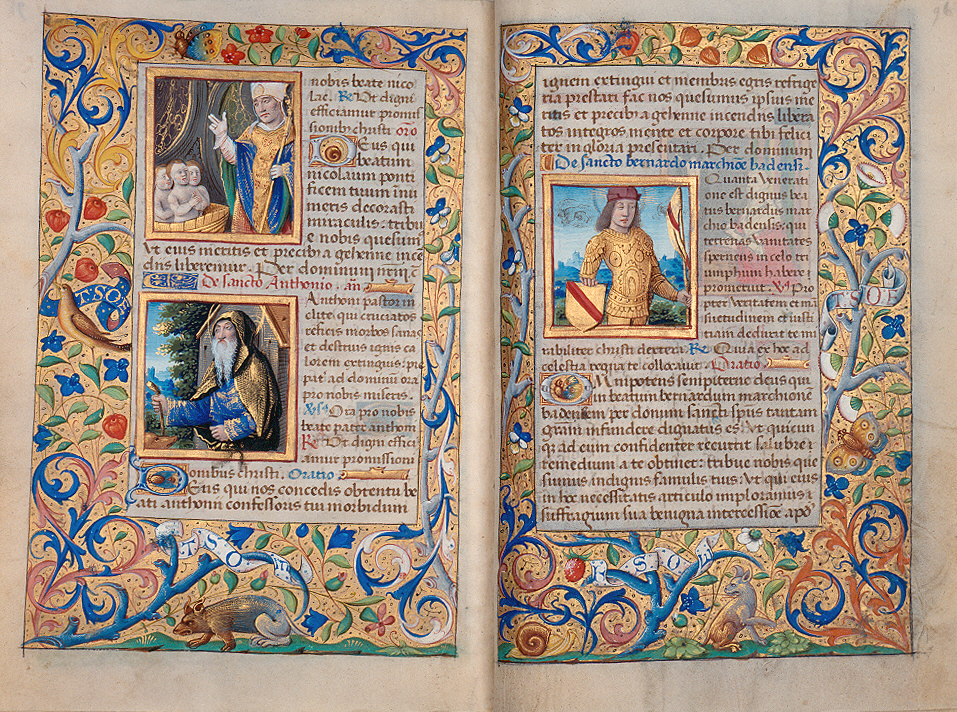 nobis beate nico
lae. R Ut digni
efficiamur promis
sionib christi oro
Deus qui
beatum
nicolaum ponti
ficem tuum inu
meris decorasti
miraculis: tribu
e nobis quesum
ut eius meritis et precib a gehenne ince
diis liberemur. Per dominum
De sancto Anthonio. an
Anthoni pastor in
clite qui cruciatos
reficis morbos sanas
et destruis ignis ca
lorem extinguis: pie
pater ad dominum ora
pro nobis miseris.
Vs Ora pro nobis
beate pater anthoni
R Ut digni effici
amur promissioni
onibus christi. Oratio
Deus qui nos concedis obtentu be
ati anthonii confessoris tui morbidum
ignem extingui et membris egris refrige
ria prestari fac nos quesumus ipsius me
ritis et precib a gehenne incendiis libera
tos integros mente et corpore tibi felici
ter in gloria presentari. Per dominum
De sancto bernardo marchioe badensi
Quanta venerati
one est dignus bea
tus bernardus mar
chio badensis: qui
terrenas vanitates
spernens in celo tri
umphum habere
prometuit. Vs Pro
pter veritatem et ma
suetudinem et iusti
tiam deducit te mi
rabiliter christi dextera. R Quia ex hoc ad
celestia regna te collocavit. Oratio
Omnipotens sempiterne deus qui
beatum bernardum marchione
badensem per donum sancti sps tantam
gram infundere dignatus es: Ut quicun
qz ad eum confidenter recurrit salubre
remedium a te obtinet: tribue nobis que
sumus indignis famulis tuis: Ut qui eius
in hoc necessitatis articulo imploramus
suffragium sua benigna intercessioe apo